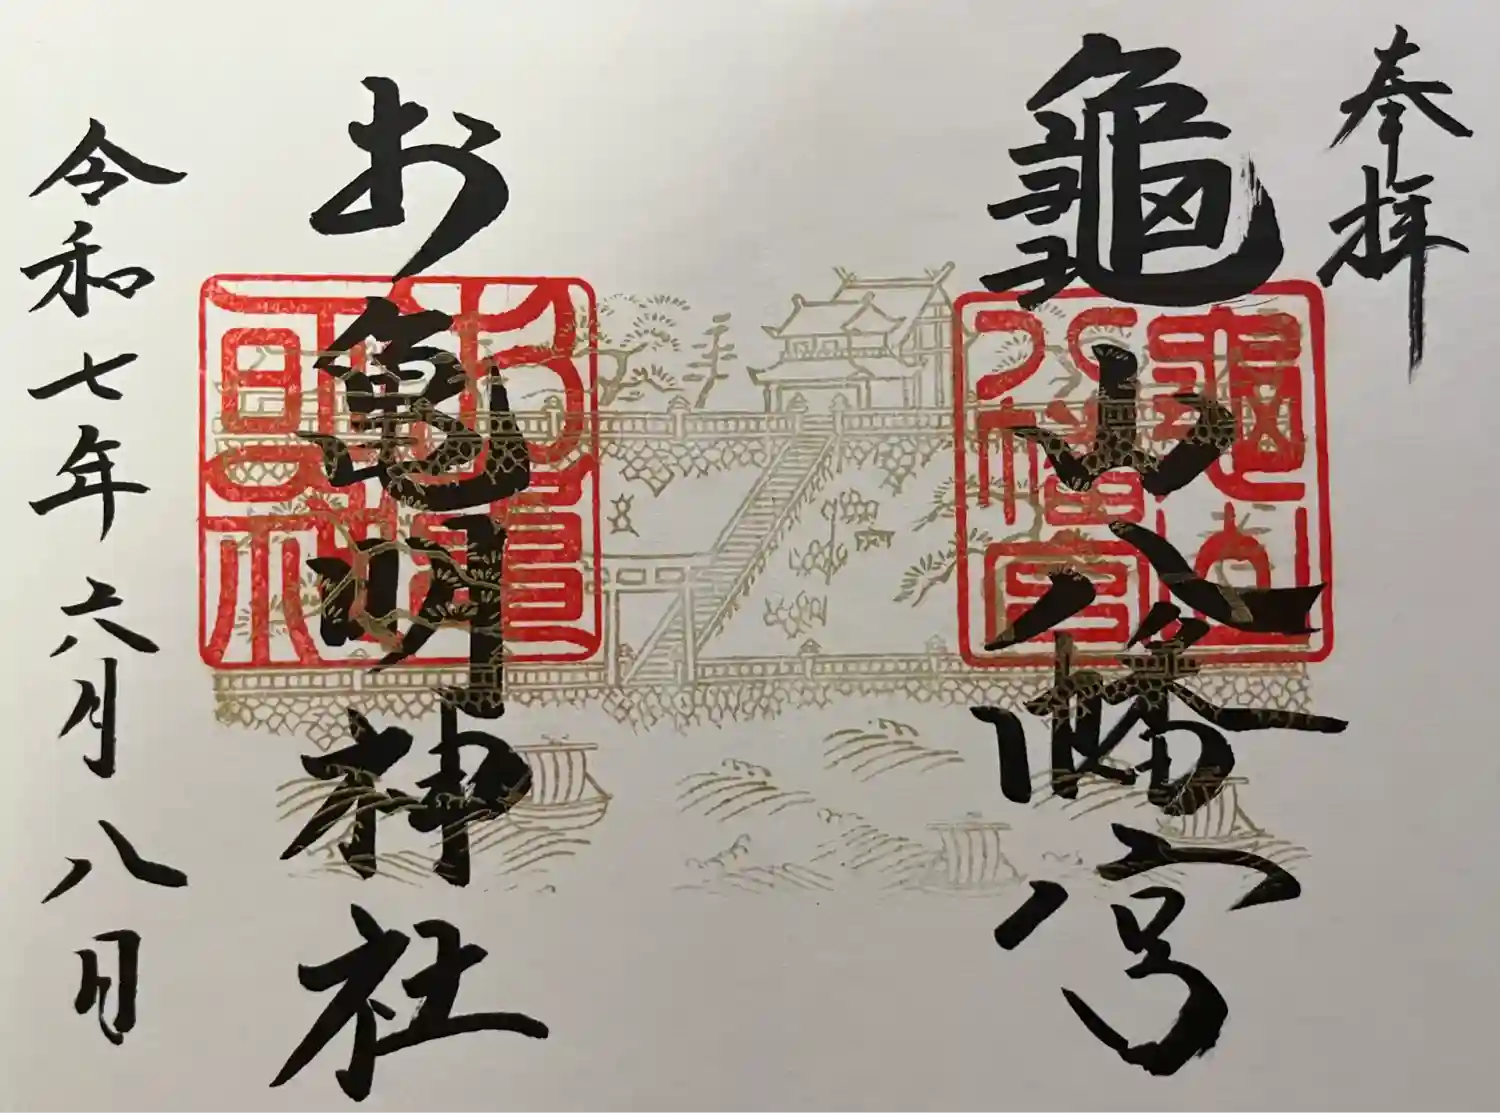 奉拝
龜山八幡宮
お亀明神社
令和七年六月八日
龜山八幡宮
お亀明神社